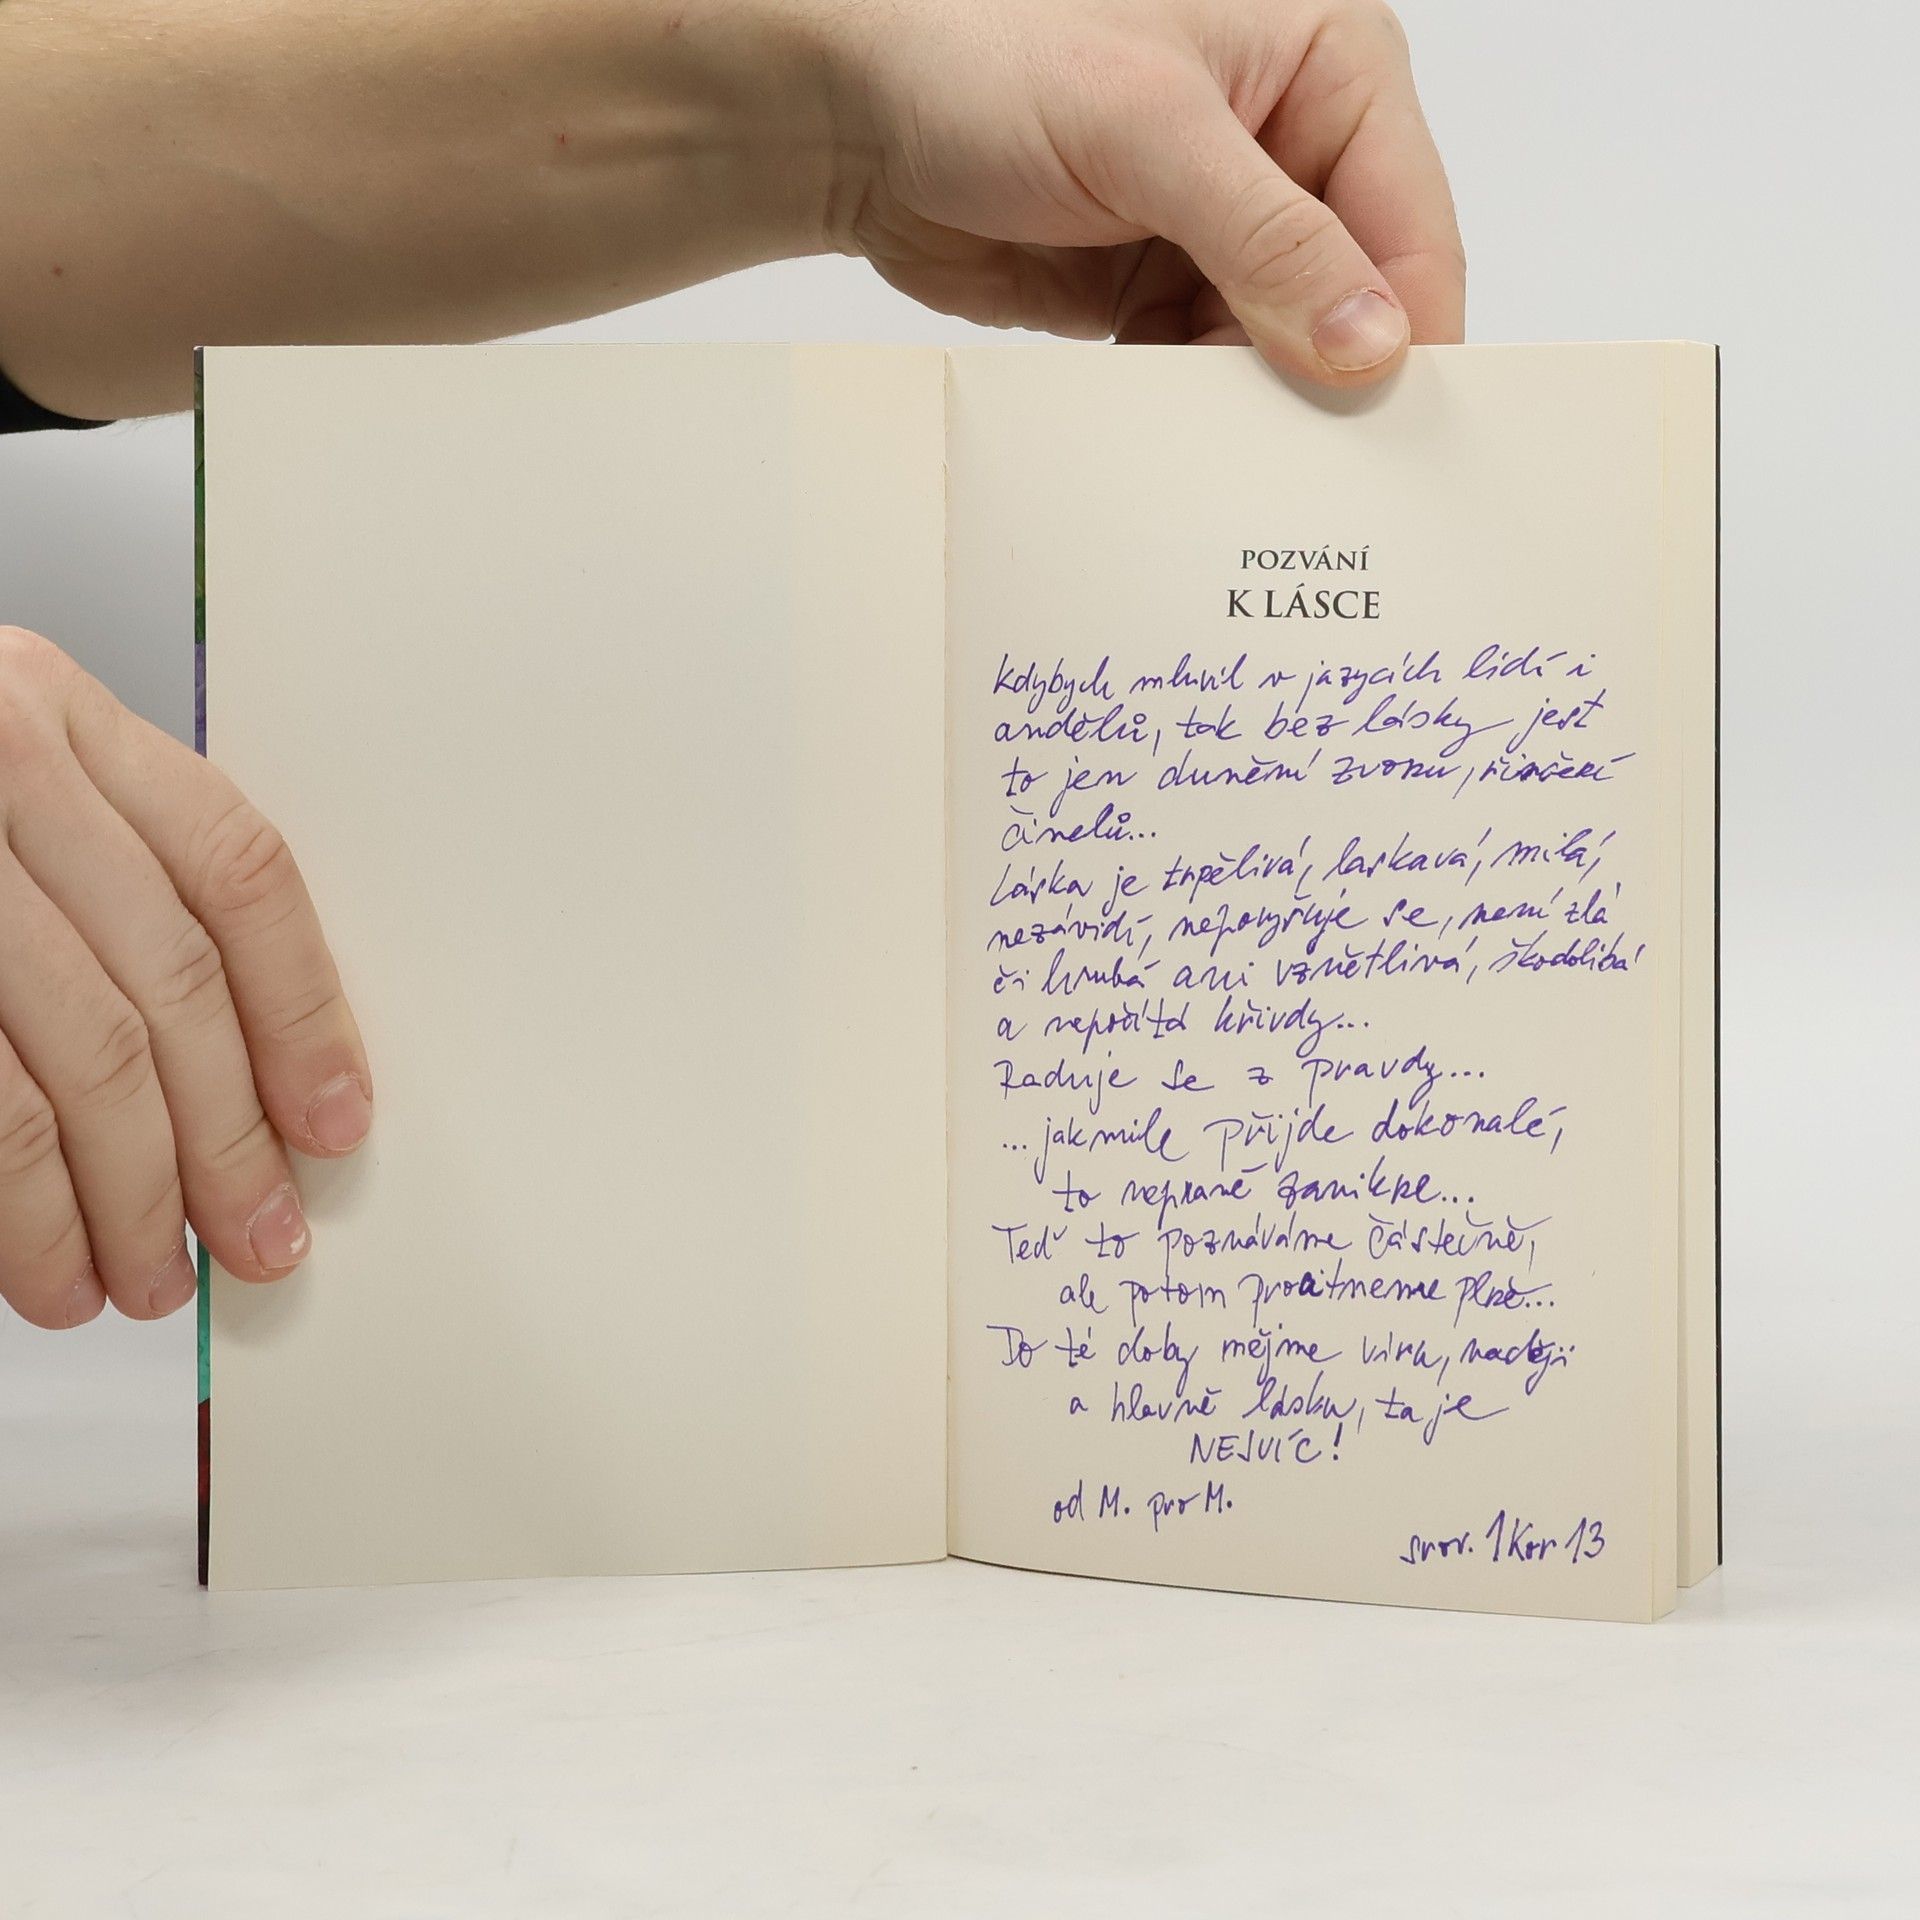 POZVÁNÍ
K LÁSCE
Kdybych mluvil v jazycích lidí i
andělů, tak bez lásky jest
to jen dunění zvonu, řinčení
činelů...
Láska je trpělivá, laskavá, milá,
nezávidí, nepovyšuje se, není zlá
či hrubá ani vznětlivá, škodolibá
a nepočítá křivdy...
Raduje se z pravdy...
...jakmile přijde dokonalé,
to nepravé zanikne...
Teď to poznáváme částečně,
ale potom procitneme plně...
Do té doby mějme víru, naději
a hlavně lásku, ta je
NEJVÍC!
od M. pro M.
srov. 1 Kor 13